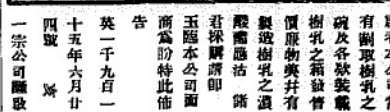 有割取樹乳之
碗及各欵裝載
樹乳之箱發售
價廉物美并有
製造樹乳之漬
醱醋應沽 諸
君採購請卽
玉臨本公司面
商爲盼特此佈
告
英一千九百一
十五年六月廿
四號
一宗公司謹啟